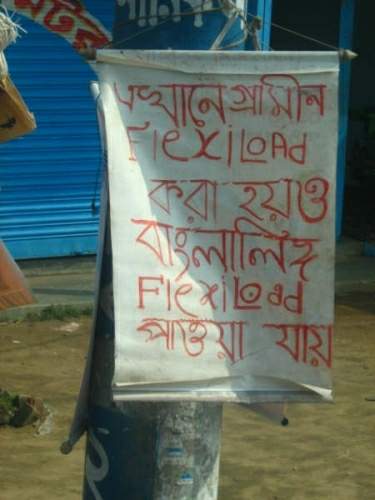 এখানে গ্রামীন
FlexiLoAd
করা হয়ও
বাংলালিঙ্ক
FlexiLoad
পাওয়া যায়